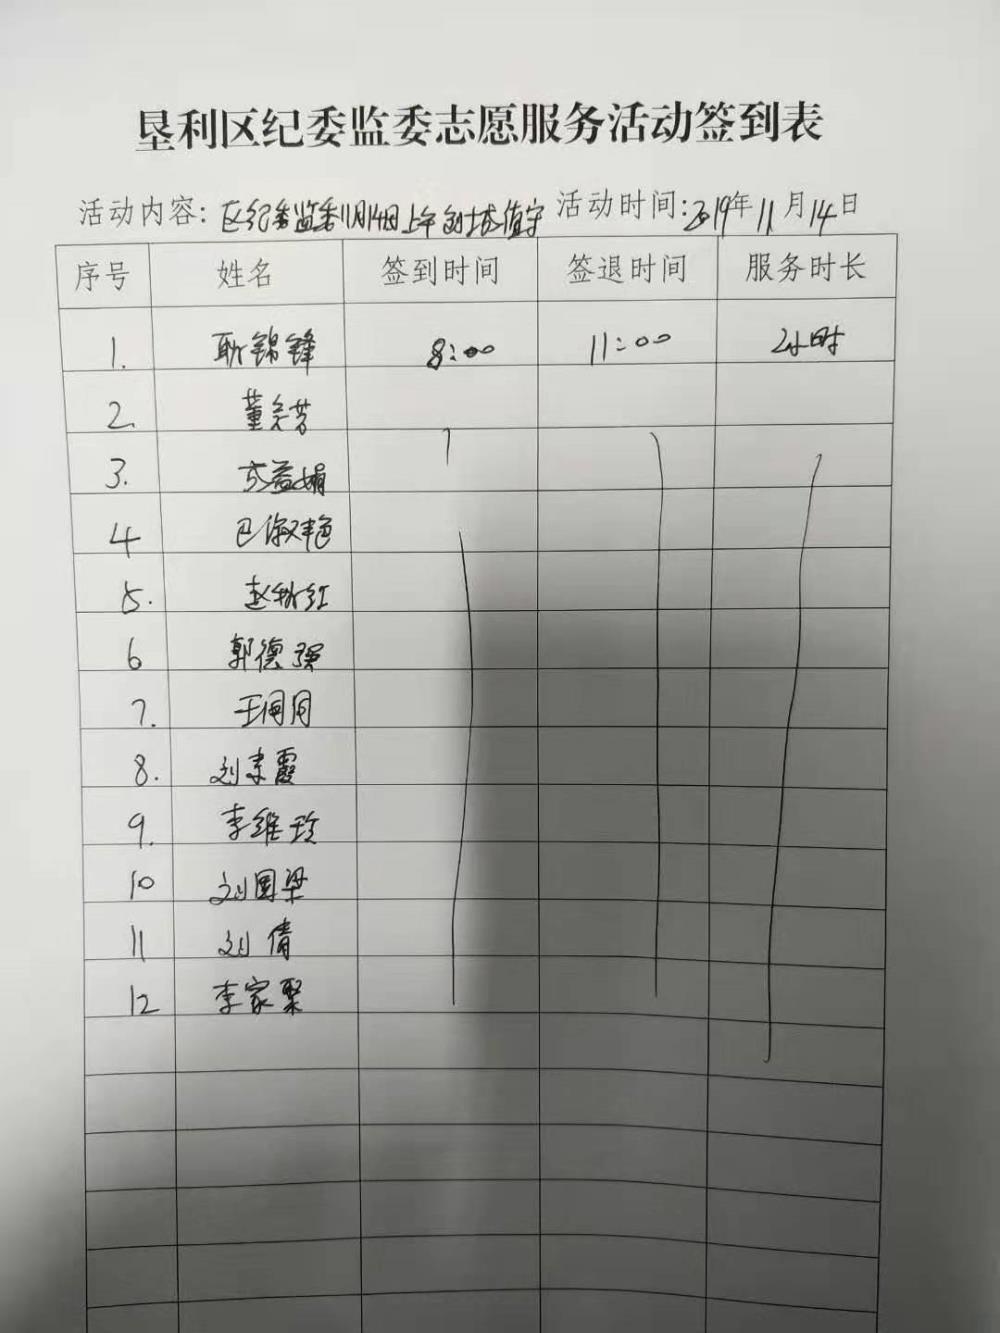 垦利区纪委监委志愿服务活动签到表
活动内容: 区纪委监委11月14日上午创城值守 活动时间:2019年11月14日
序号 姓名 签到时间 签退时间 服务时长
1. 耿锦锋 8:00 11:00 2小时
2. 董芳
3. 益娟
4 巴淑艳
5. 赵红
6 郭德强
7. 王同同
8. 刘素霞
9. 李维珍
10 刘国梁
11 刘倩
12 李家聚